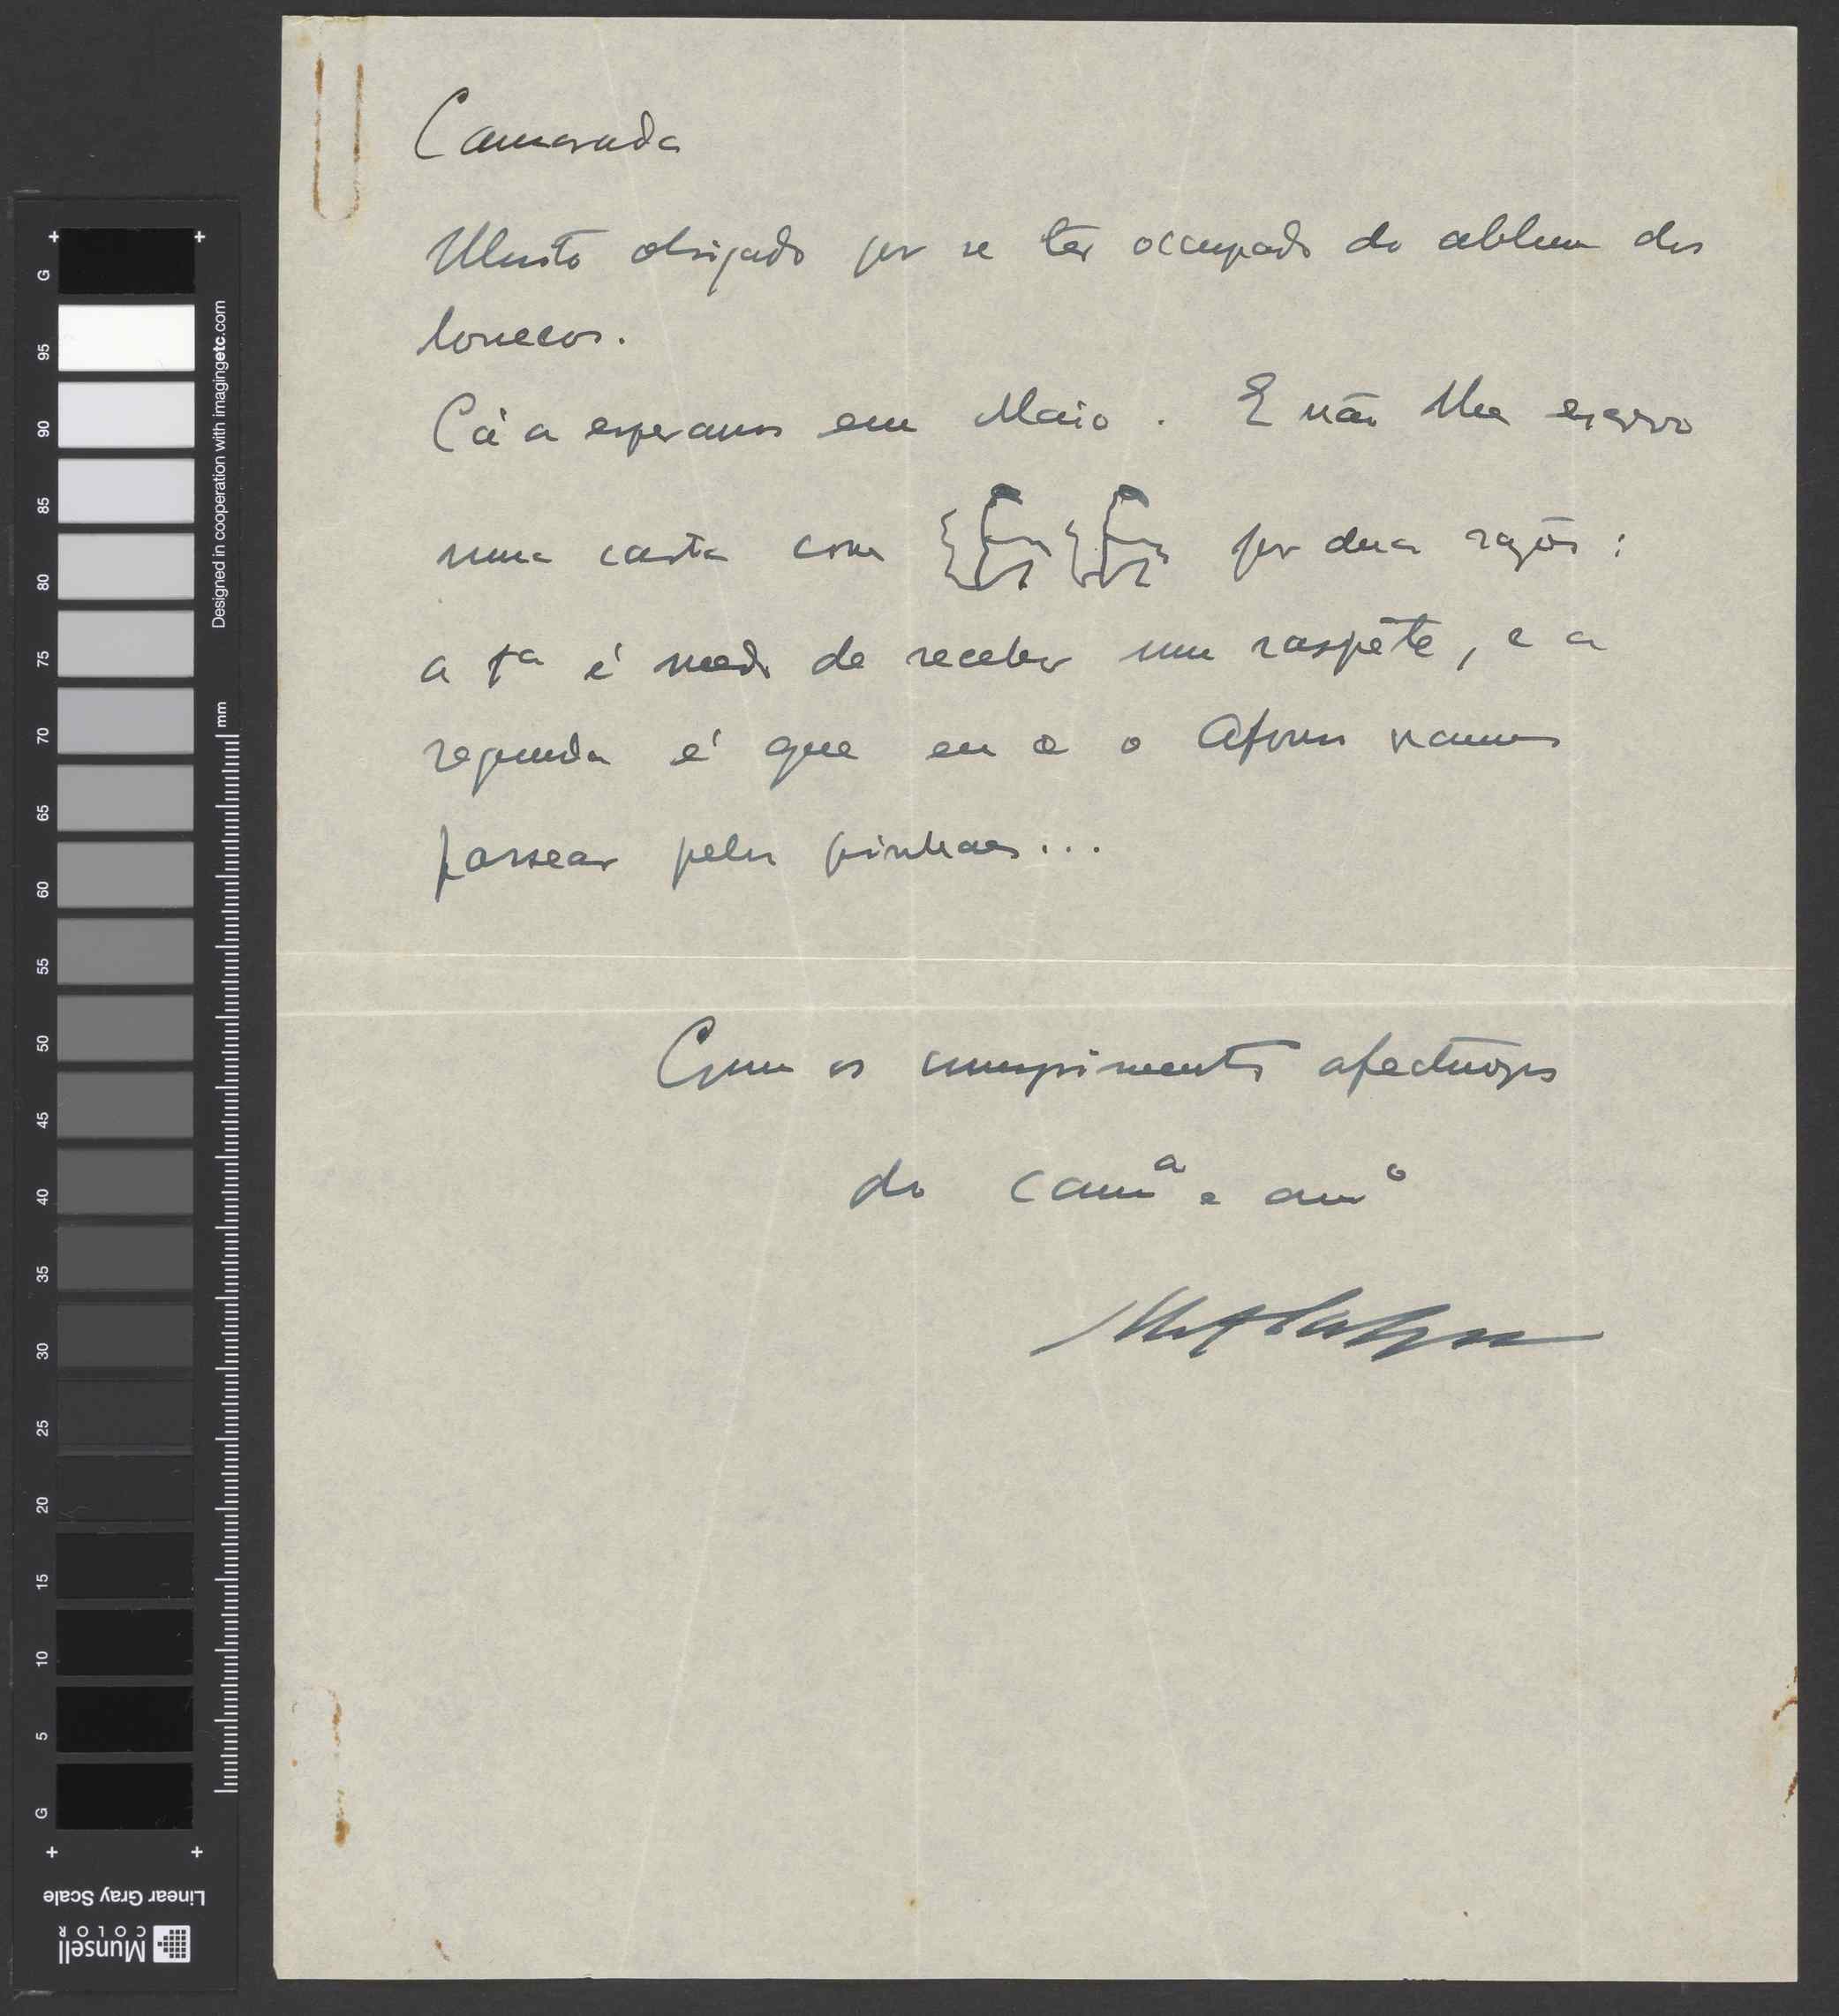 Camarada
Muito obrigado por se ter occupado do album dos
bonecos.
Cá a esperamos em Maio. E não lhe escrevo
uma carta com por duas razões:
a 1a é medo de receber um raspête, e a
segunda é que eu e o Afonso vamos
passear pelos pinhaes...
Com os cumprimentos afectuosos
do camª e amº
G 95 90 85 80 75 70 65 60 55 50 45 40 35 30 25 20 15 10 5 G
Designed in cooperation with imagingetc.com
mm
Linear Gray Scale
Munsell
COLOR